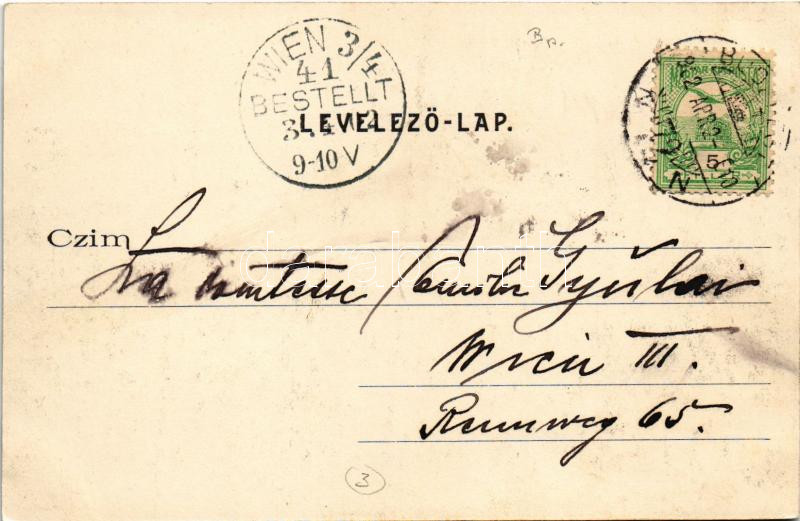 WIEN 3/4T
41
BESTELLT
9-10 V
B p.
LEVELEZŐ-LAP.
5
Czim
La comtesse Gyulai
Wien III.
Rennweg 65.
3